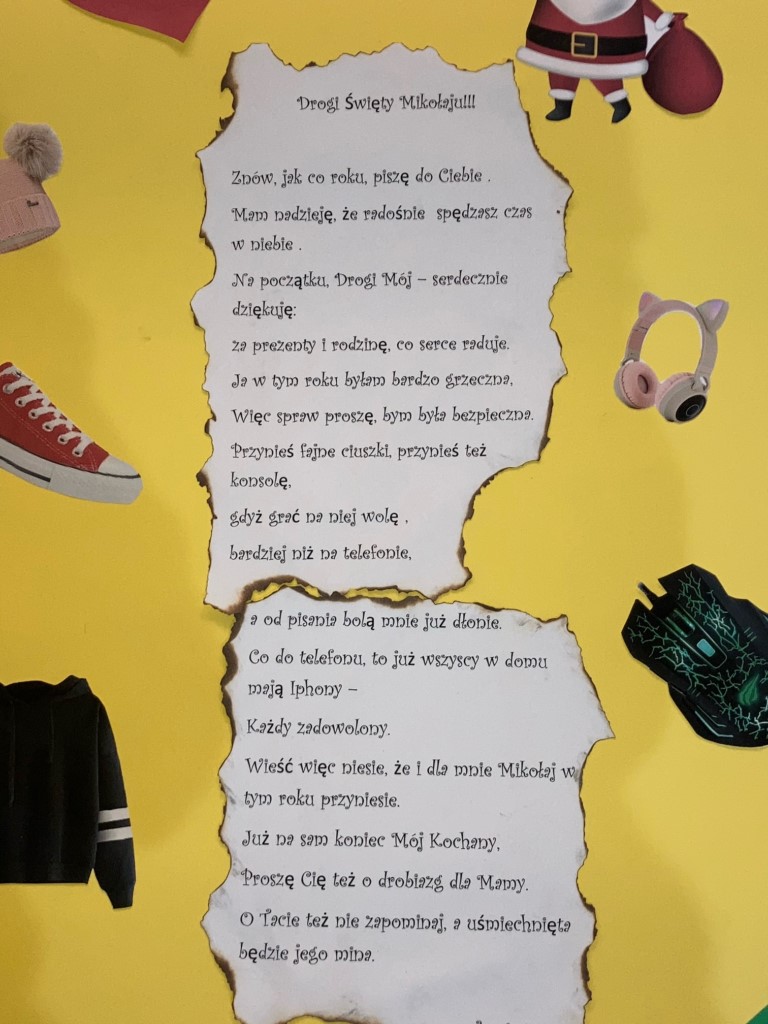 Drogi Święty Mikołaju!!!
Znów, jak co roku, piszę do Ciebie .
Mam nadzieję, że radośnie spędzasz czas
w niebie .
Na początku, Drogi Mój – serdecznie
dziękuję:
za prezenty i rodzinę, co serce raduje.
Ja w tym roku byłam bardzo grzeczna,
Więc spraw proszę, bym była bezpieczna.
Przynieś fajne ciuszki, przynieś też
konsolę,
gdyż grać na niej wolę ,
bardziej niż na telefonie,
a od pisania bolą mnie już dłonie.
Co do telefonu, to już wszyscy w domu
mają Iphony –
Każdy zadowolony.
Wieść więc niesie, że i dla mnie Mikołaj w
tym roku przyniesie.
Już na sam koniec Mój Kochany,
Proszę Cię też o drobiazg dla Mamy.
O Tacie też nie zapominaj, a uśmiechnięta
będzie jego mina.